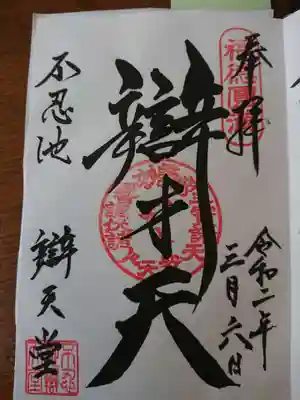 奉拝
令和二年
三月六日
辯才天
不忍池
辯天堂